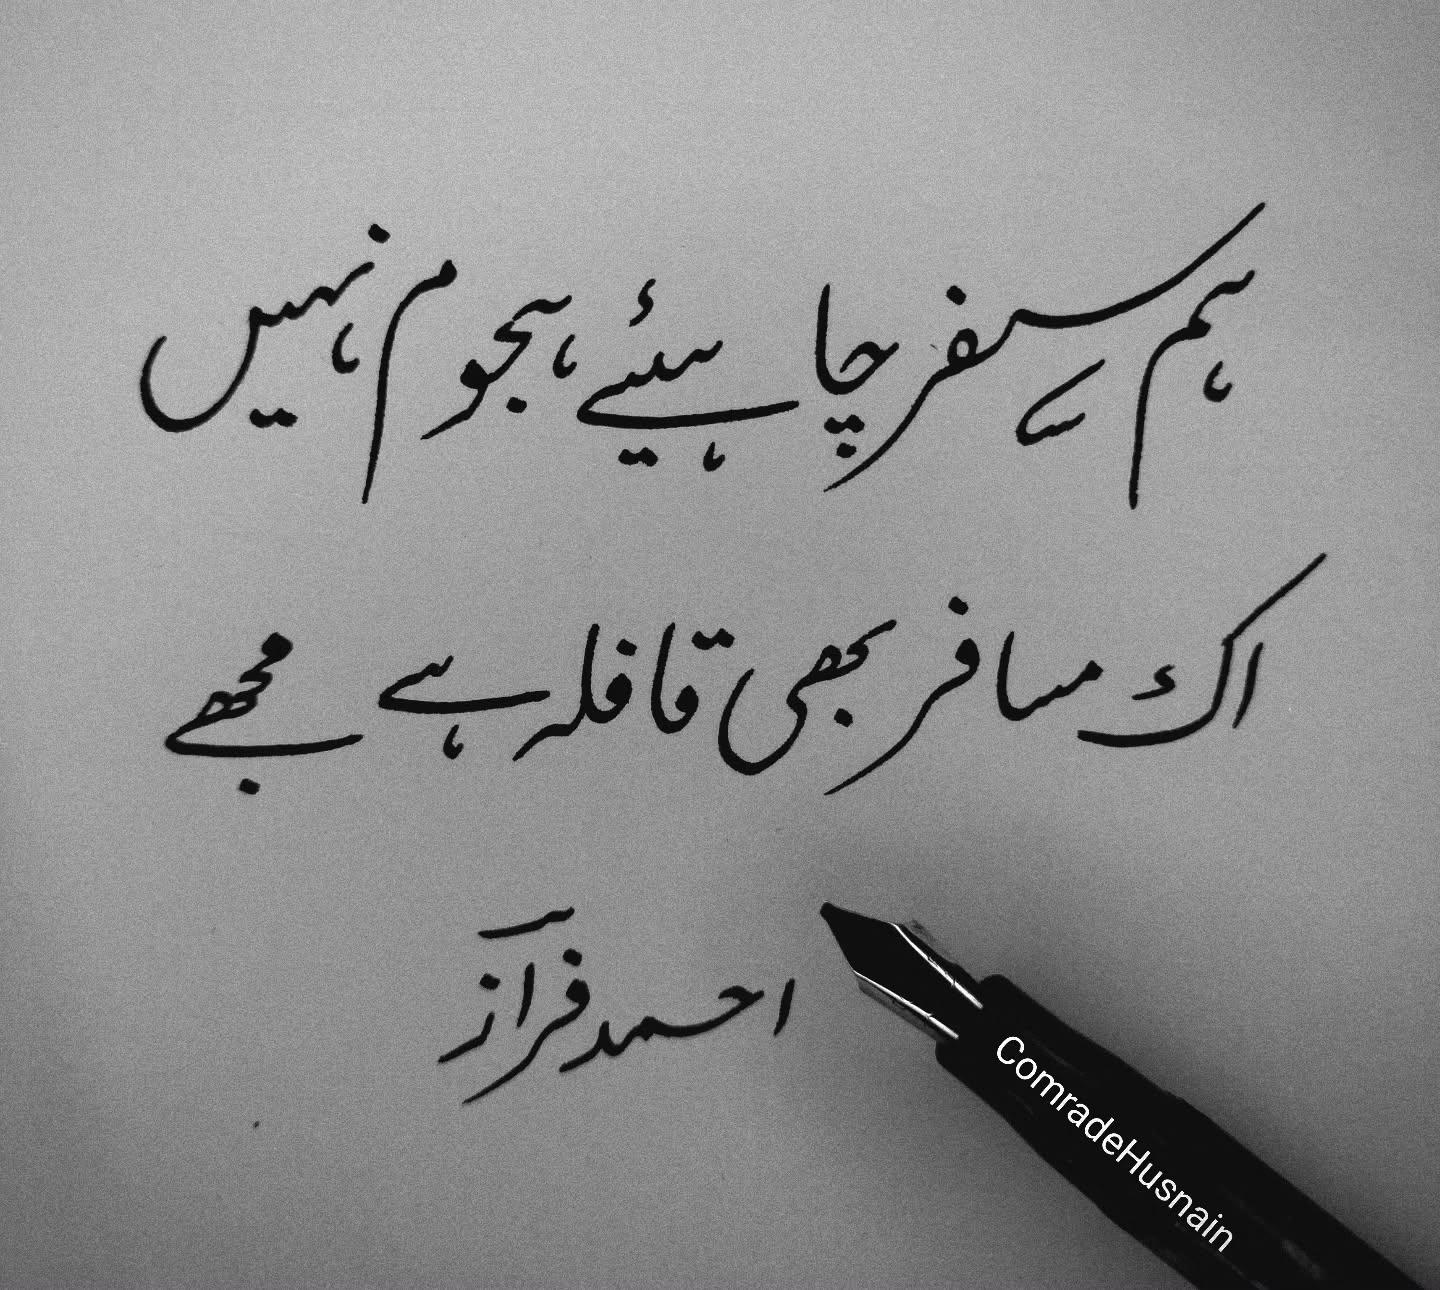 ہم سفر چاہیئے ہجوم نہیں
اک مسافر بھی قافلہ ہے مجھے
احمد فراز
ComradeHusnain